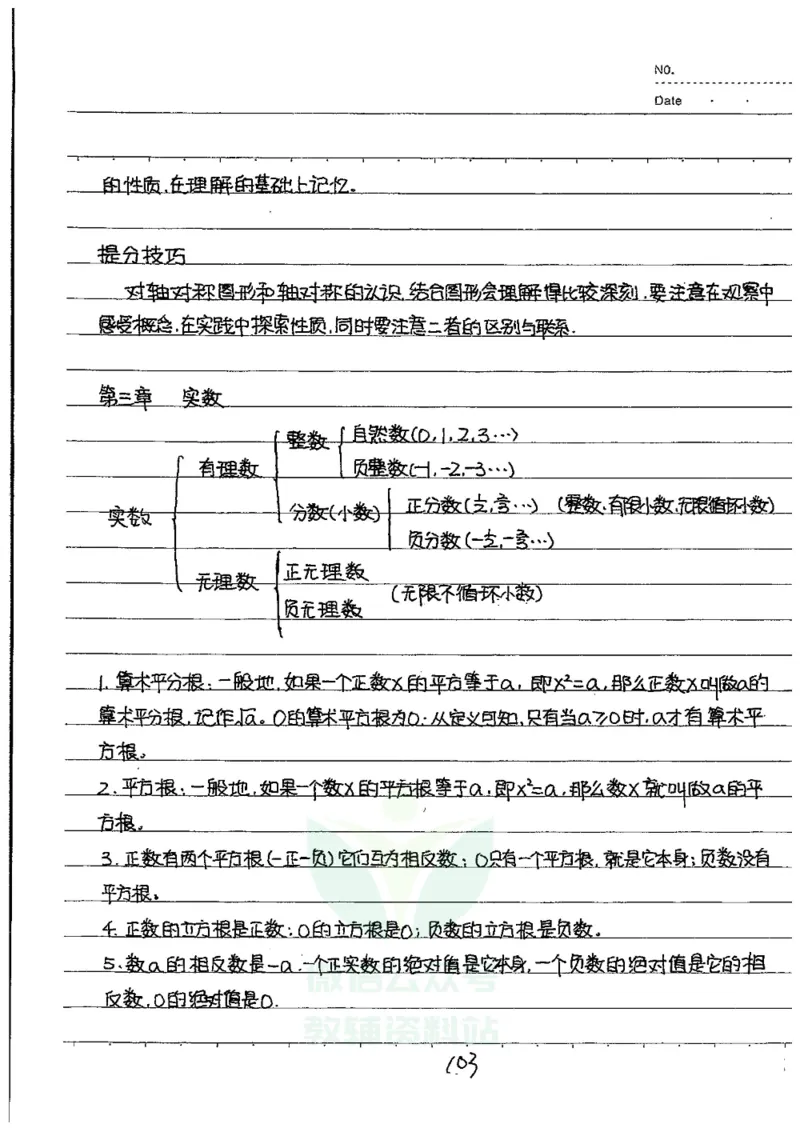 NO.
Date
的性质,在理解的基础上记忆。
提分技巧
对轴对称图形和轴对称的认识,结合图形会理解得比较深刻,要注意在观察中
感受概念,在实践中探索性质,同时要注意二者的区别与联系.
第三章 实数
实数
有理数
整数
自然数(0,1,2,3…)
负整数(-1,-2,-3…)
分数(小数)
正分数(1/2,1/3…) (整数、有限小数、无限循环小数)
负分数(-1/2,-1/3…)
无理数
正无理数
负无理数
(无限不循环小数)
1. 算术平方根:一般地,如果一个正数x的平方等于a,即x²=a,那么正数x叫做a的
算术平方根,记作√a。0的算术平方根为0;从定义可知,只有当a≥0时,a才有算术平
方根。
2、平方根:一般地,如果一个数x的平方根等于a,即x²=a,那么数x就叫做a的平
方根。
3.正数有两个平方根(一正一负)它们互为相反数;0只有一个平方根,就是它本身;负数没有
平方根。
4.正数的立方根是正数;0的立方根是0;负数的立方根是负数。
5、数a的相反数是-a.一个正实数的绝对值是它本身,一个负数的绝对值是它的相
反数,0的绝对值是0.
微信公众号
教辅资料站
103